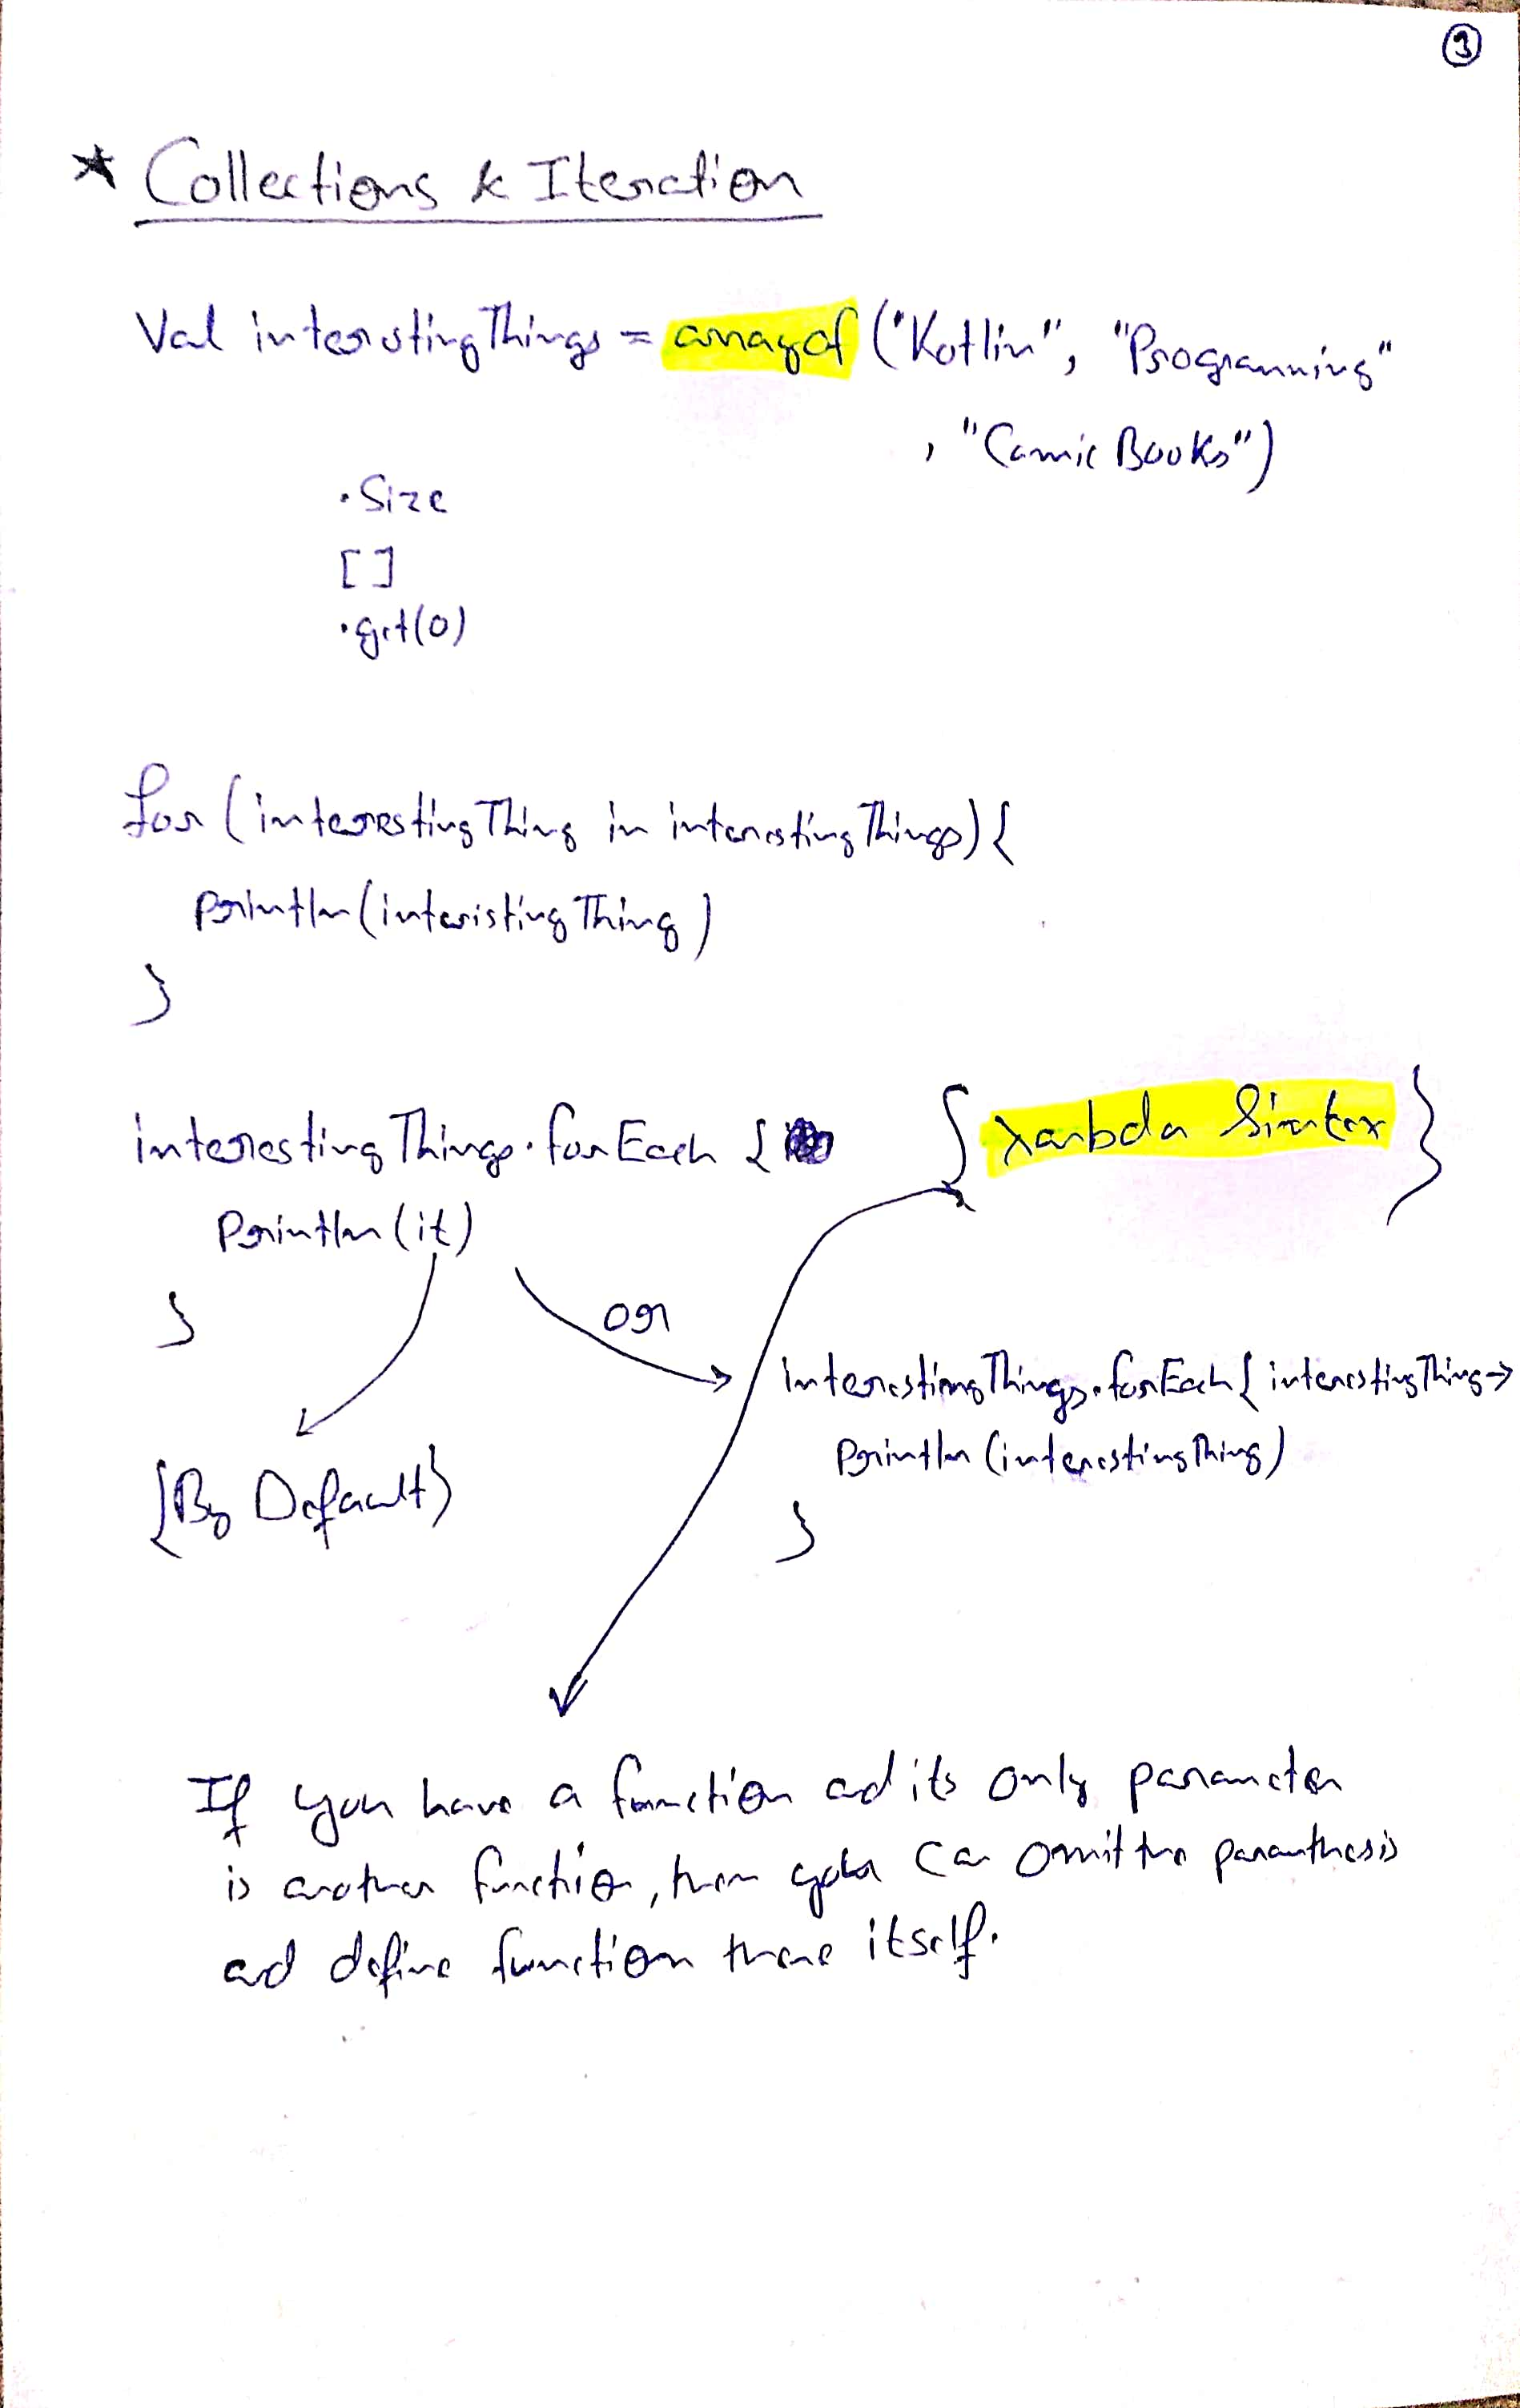 9
* Collections & Iteration
Val interestingThings = arrayof ("Kotlin", "Programming"
, "Comic Books")
.Size
[]
.get(0)
for (interestingThing in interestingThings) {
println (interistingThing)
}
interestingThings.forEach {
{ Lambda Sintax }
println (it)
}
or
{By Default}
interestingThings.forEach { interestingThing →
println (interestingThing)
}
If you have a function ad its only parameter
is another function, then you can omit the paranthesis
ad define function there itself.